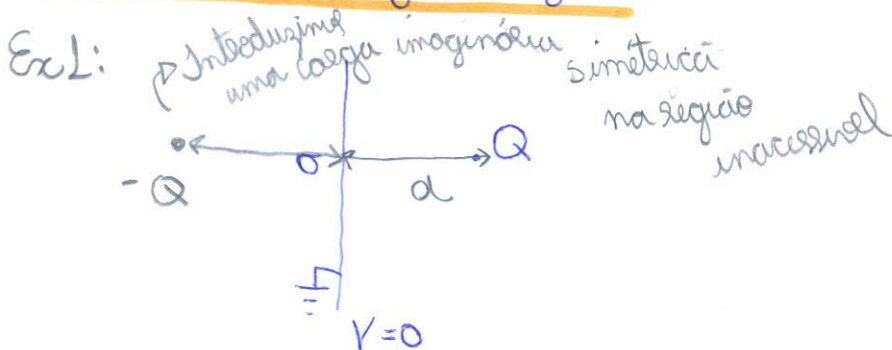 Ex1:
Introduzimos
uma carga imaginária
simétrica
na região
inacessível
-Q
O
Q
d
V=0